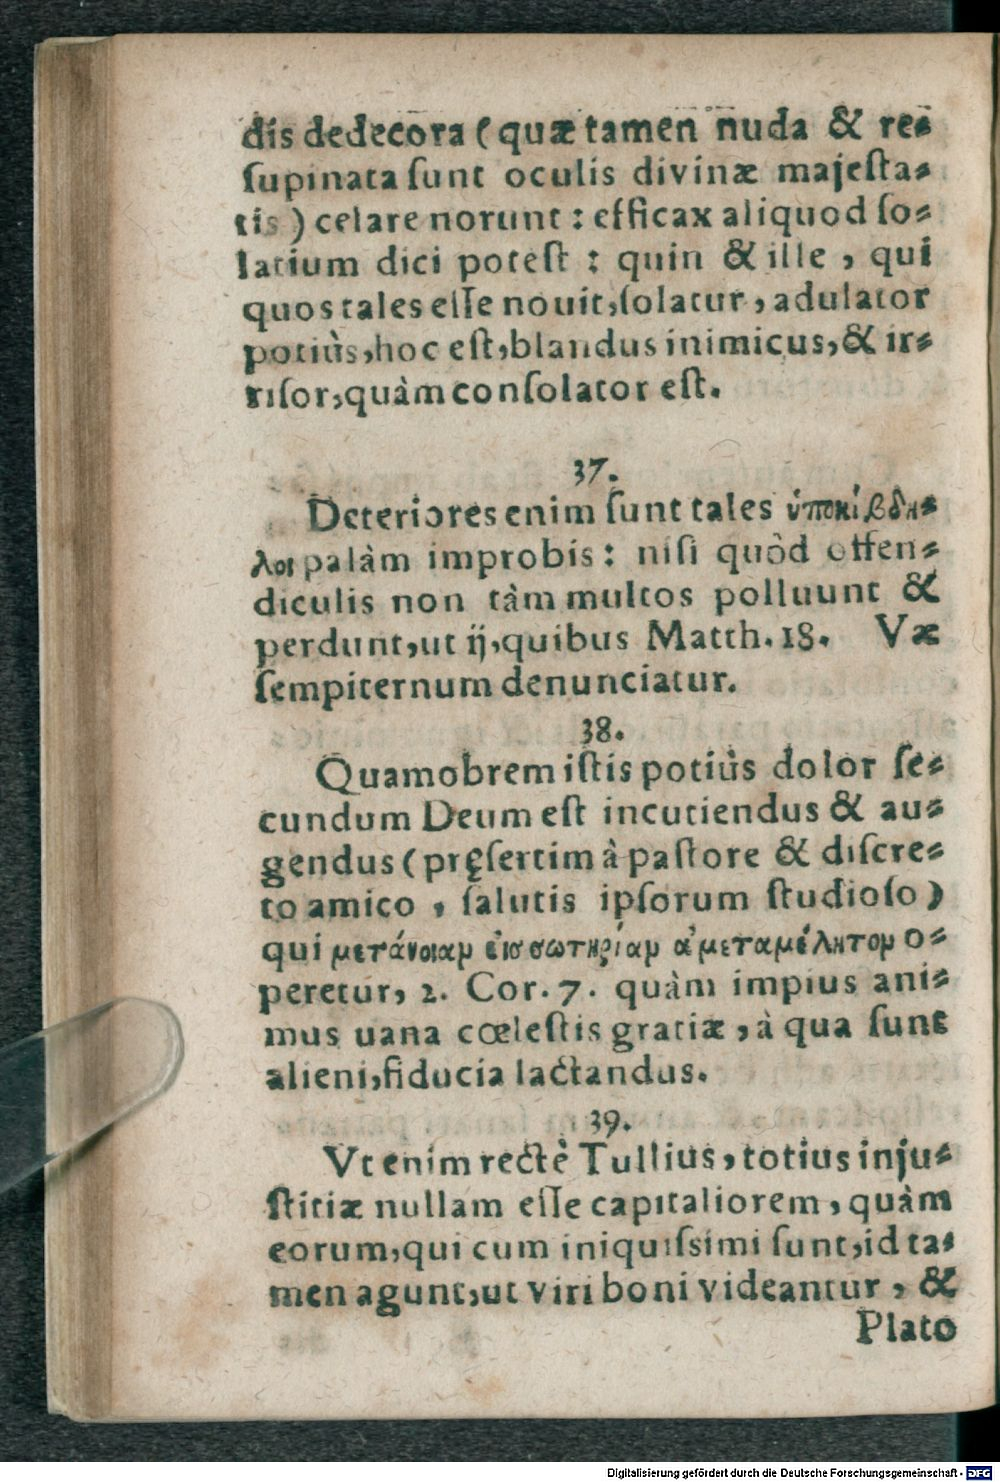 dis dedecora (quæ tamen nuda & re⸗
ſupinata ſunt oculis divinæ majeſta⸗
tis) celare norunt: efficax aliquod ſo⸗
latium dici poteſt: quin & ille, qui
quos tales eſſe nouit, ſolatur, adulator
potiùs, hoc eſt, blandus inimicus, & ir⸗
riſor, quàm conſolator eſt.
37.
Deteriores enim ſunt tales ὑποκίβδη⸗
λοι palàm improbis: niſi quòd offen⸗
diculis non tàm multos polluunt &
perdunt, ut ij, quibus Matth. 18. Væ
ſempiternum denunciatur.
38.
Quamobrem iſtis potiùs dolor ſe⸗
cundum Deum eſt incutiendus & au⸗
gendus (pręſertim à paſtore & diſcre⸗
to amico, ſalutis ipſorum ſtudioſo)
qui μετάνοιαν εἰς σωτηρίαν ἀμεταμέλητον o⸗
peretur, 2. Cor. 7. quàm impius ani⸗
mus uana cœleſtis gratiæ, à qua ſunt
alieni, fiducia lactandus.
39.
Vt enim rectè Tullius, totius inju⸗
ſtitiæ nullam eſſe capitaliorem, quàm
eorum, qui cum iniquiſsimi ſunt, id ta⸗
men agunt, ut viri boni videantur, &
Plato
Digitalisierung gefördert durch die Deutsche Forschungsgemeinschaft - DFG